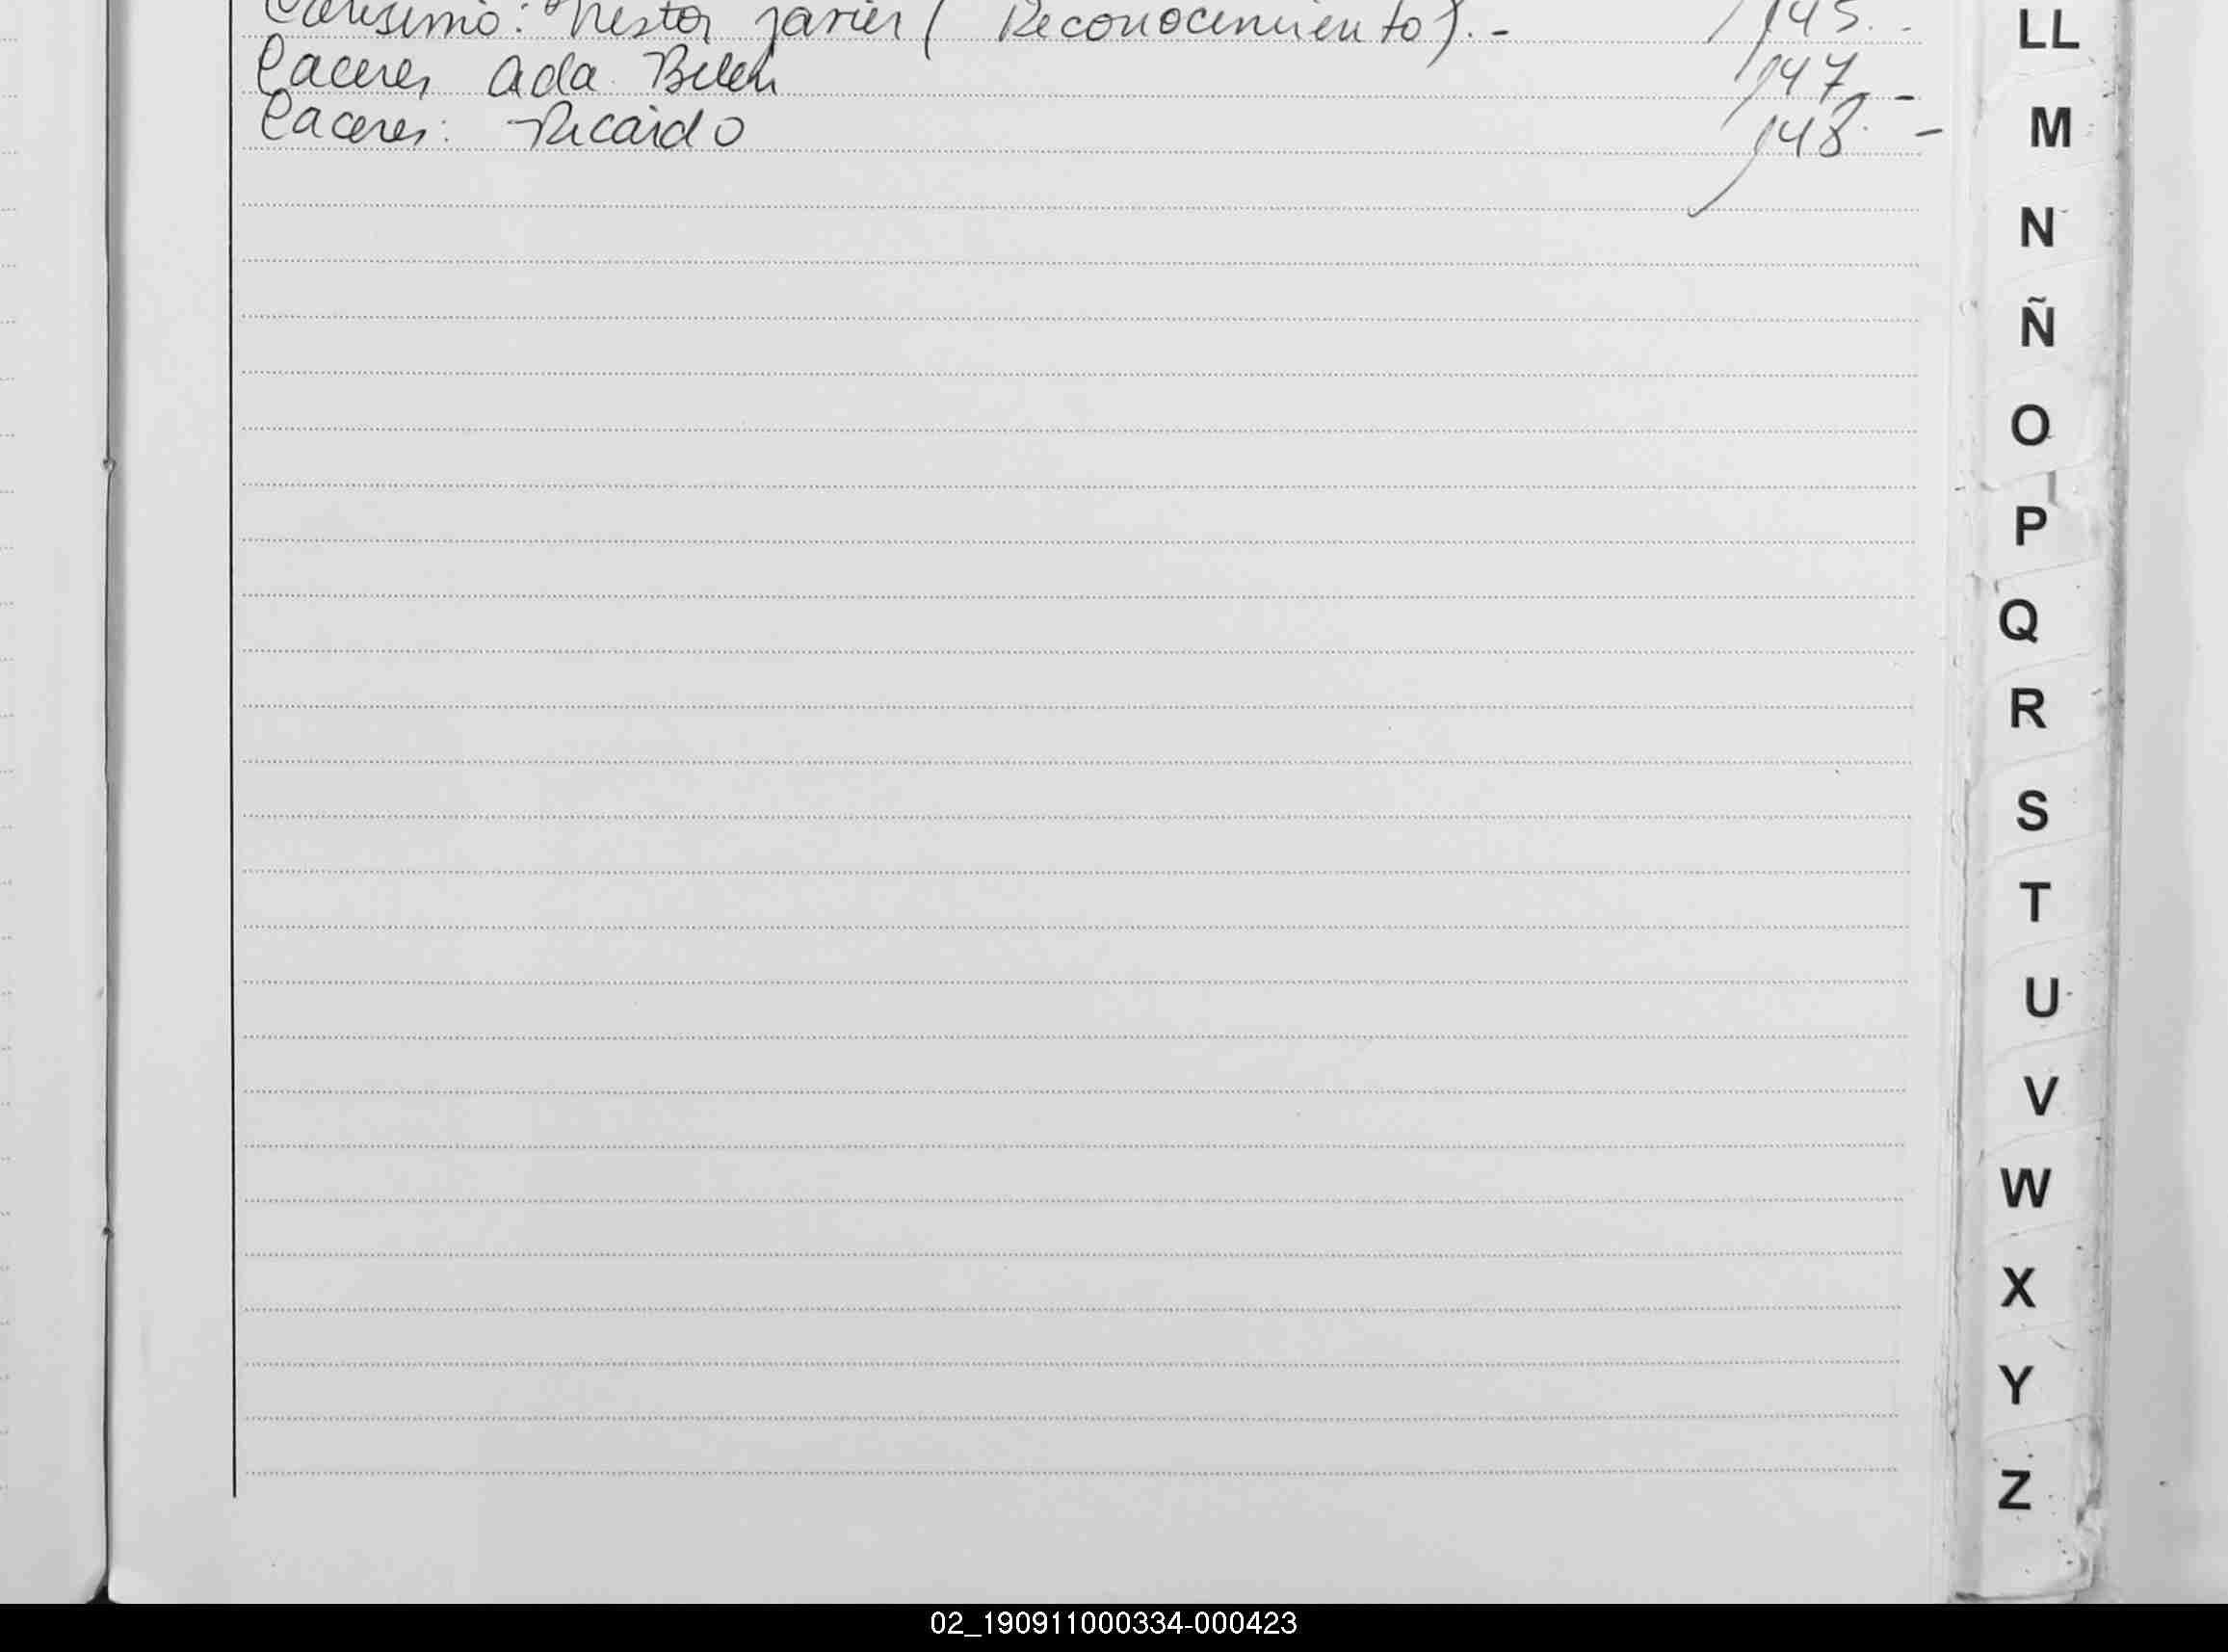 Carisimo: Nestor Javier (Reconocimiento).- 145.-
Caceres Ada Belen 147.-
Caceres: Ricardo 148.-
LL
M
N
Ñ
O
P
Q
R
S
T
U
V
W
X
Y
Z
02_190911000334-000423